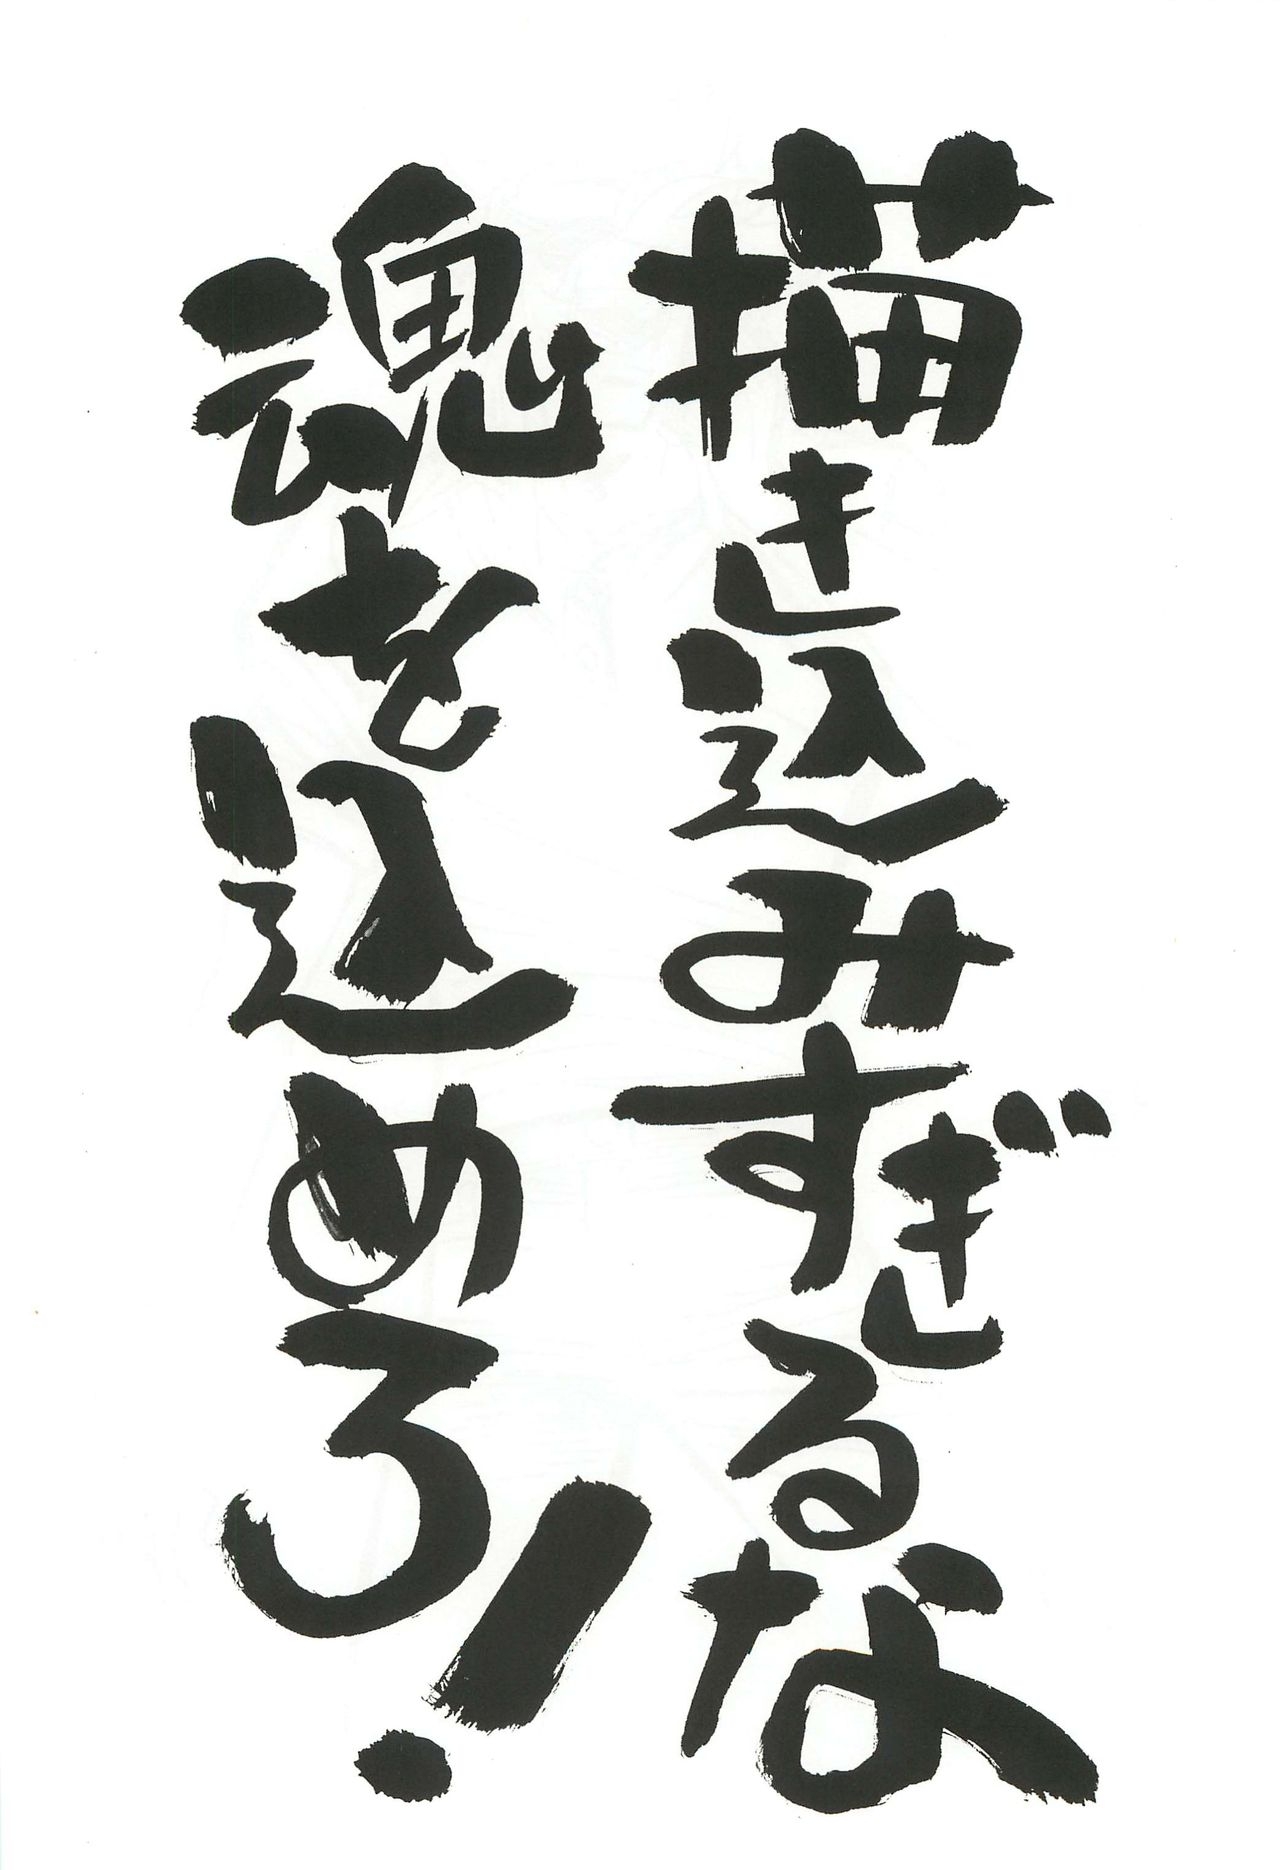 描き込みすぎるな
魂を込めろ！